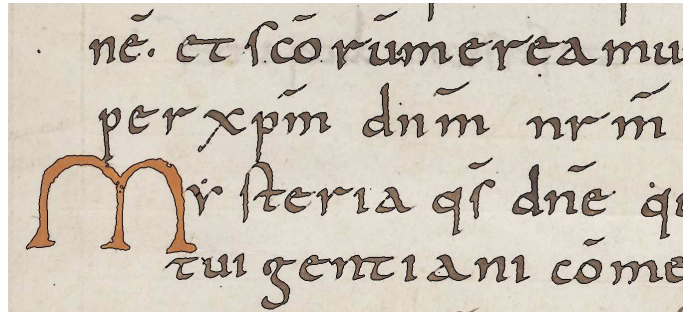 nē. et scōrū mereamu
per xp̄m dnm̄ nrm̄
Mysteria qs̄ dnē
tui gentiani cōme